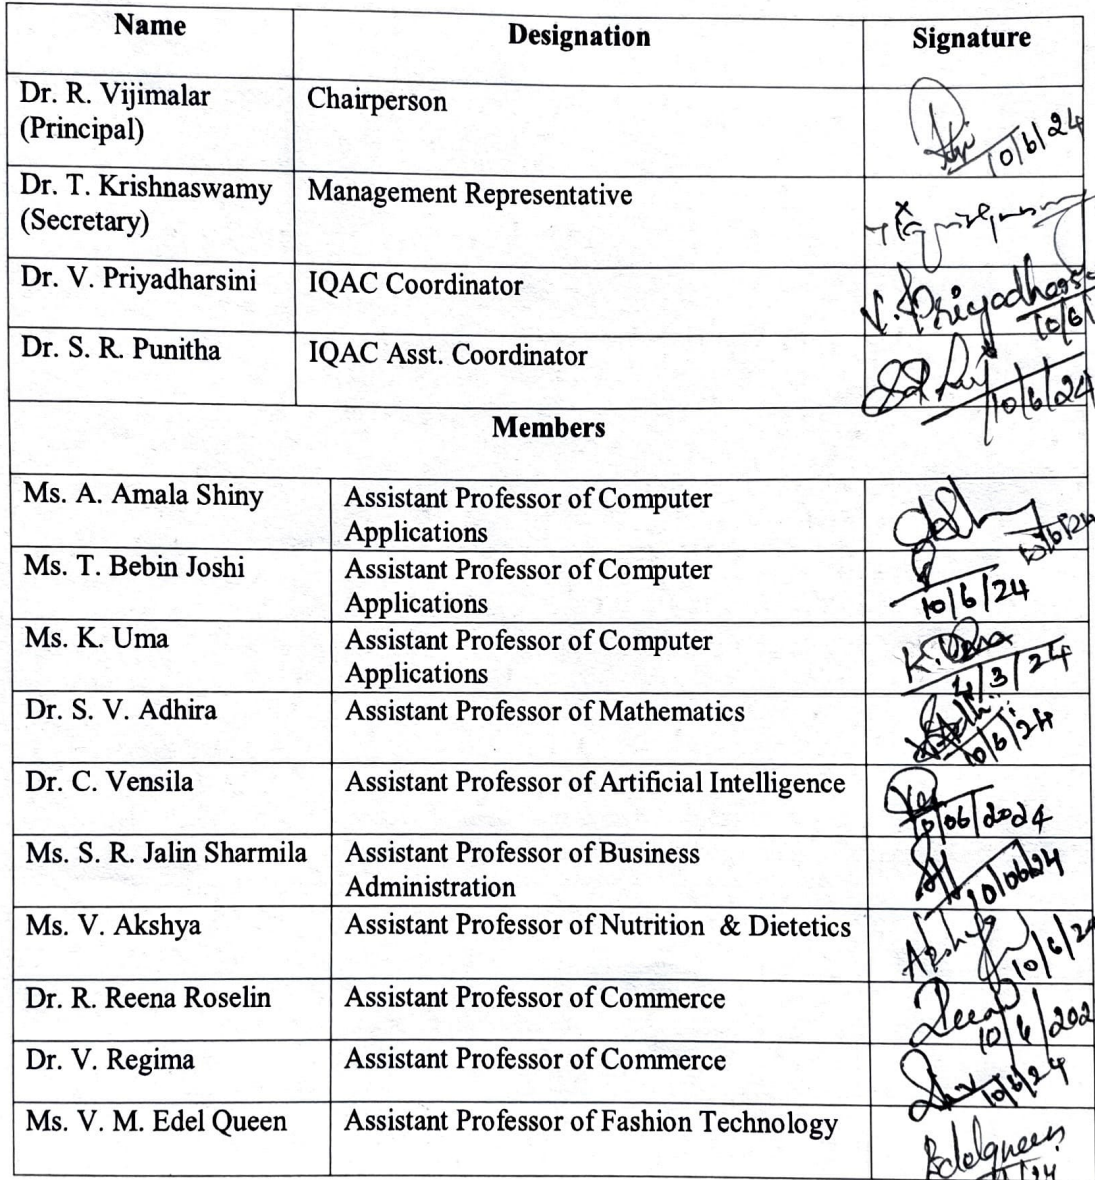 Name Designation Signature
Dr. R. Vijimalar Chairperson
(Principal) 10/6/24
Dr. T. Krishnaswamy Management Representative
(Secretary)
Dr. V. Priyadharsini IQAC Coordinator V. Priyadhars
10/6/
Dr. S. R. Punitha IQAC Asst. Coordinator
10/6/24
Members
Ms. A. Amala Shiny Assistant Professor of Computer
Applications 10/6/24
Ms. T. Bebin Joshi Assistant Professor of Computer
Applications 10/6/24
Ms. K. Uma Assistant Professor of Computer K. Uma
Applications 4/3/24
Dr. S. V. Adhira Assistant Professor of Mathematics
10/6/24
Dr. C. Vensila Assistant Professor of Artificial Intelligence
10/06/2024
Ms. S. R. Jalin Sharmila Assistant Professor of Business
Administration 10/06/24
Ms. V. Akshya Assistant Professor of Nutrition & Dietetics Akshya
10/6/24
Dr. R. Reena Roselin Assistant Professor of Commerce
10/6/202
Dr. V. Regima Assistant Professor of Commerce
10/6/24
Ms. V. M. Edel Queen Assistant Professor of Fashion Technology Edelqueen